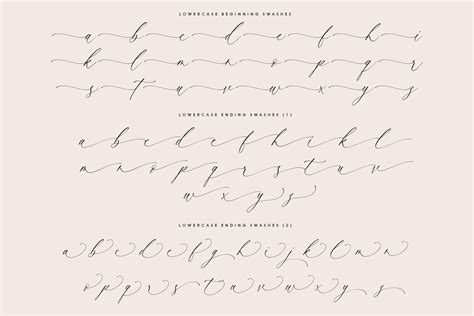 LOWERCASE BEGINNING SWASHES
a b c d e f h i
k l m n o p q r
s t u v w x y z
LOWERCASE ENDING SWASHES (1)
a b c d e f h i k l
m n o p q r s t u v
w x y z
LOWERCASE ENDING SWASHES (2)
a b c d e f g h i j k l m n
o p q r s t u v w x y z